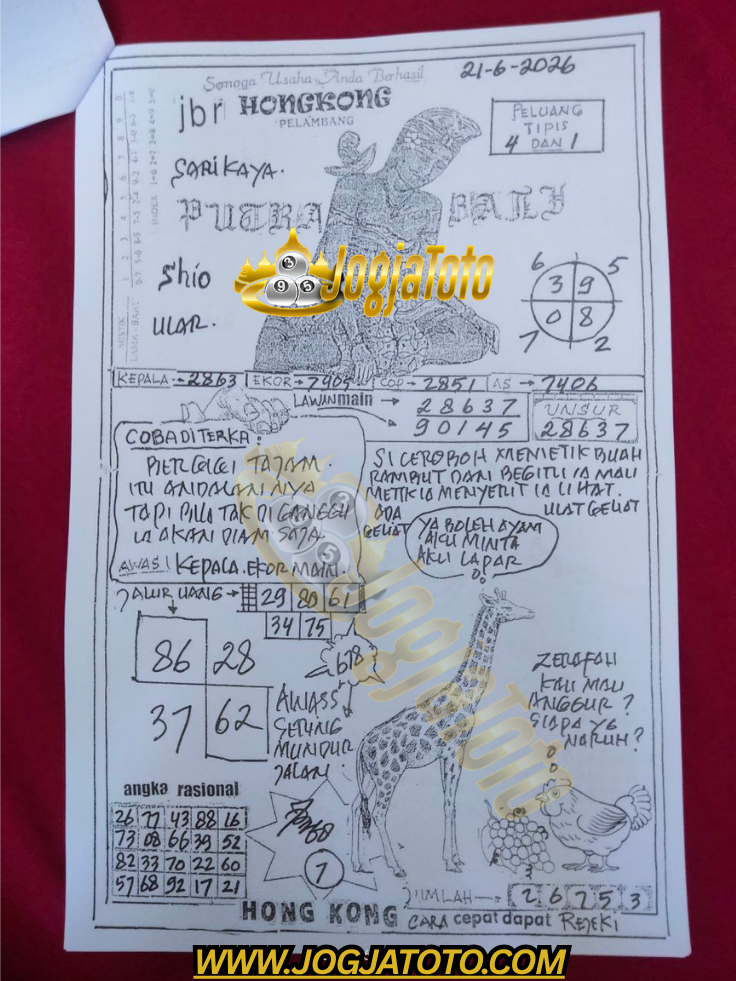 Semoga Usaha Anda Berhasil
21-6-2026
jbr HONGKONG
PELAMBANG
PELUANG
TIPIS
4 DAN 1
SARIKAYA.
PUTRA BALI
JogjaToto
3
9 5
Shio
ULAR.
6 5
3 9
0 8
7 2
KEPALA → 2863 EKOR → 7905 COP → 2851 AS → 7406
LAWAN main → 28637
90145
UNSUR
28637
COBA DITERKA:
TAJAM.
ITU ANDALANNYA
TAPI TAK DI GANGGU
IA AKAN DIAM SAJA.
AWAS! KEPALA. EKOR MAIN.
SI CEROBOH MEMETIK BUAH
RAMBUT DAN BEGITU IA MAU
METIK IA MENYERIT IA LIHAT.
ADA ULAT GELIAT
GELIAT
YA BOLEH AYAM
AKU MINTA
AKU LAPAR
JALUR UANG → 29 80 61
34 75
86 28
37 62
678
AWASS
MUNDUR
JALAN!
ZERAFAH
KAU MAU
ANGGUR?
SIAPA YG
NARUH?
angka rasional
26 77 43 88 16
73 08 66 39 52
82 33 70 22 60
57 68 92 17 21
7
JUMLAH → 2 6 7 5 3
HONG KONG CARA cepat dapat REJEKI
JogjaToto
WWW.JOGJATOTO.COM